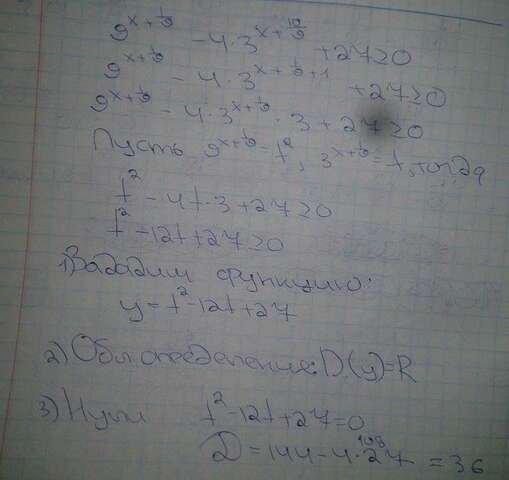 9^{x+\frac{1}{9}} - 4·3^{x+\frac{10}{9}} + 27 ≥ 0
9^{x+\frac{1}{9}} - 4·3^{x+\frac{1}{9}+1} + 27 ≥ 0
9^{x+\frac{1}{9}} - 4·3^{x+\frac{1}{9}}·3 + 27 ≥ 0
Пусть 9^{x+\frac{1}{9}} = t², 3^{x+\frac{1}{9}} = t, тогда
t² - 4t·3 + 27 ≥ 0
t² - 12t + 27 ≥ 0
1) Зададим функцию:
y = t² - 12t + 27
2) Обл определение: D(y)=R
3) Нули t² - 12t + 27 = 0
108
D = 144 - 4·27 = 36